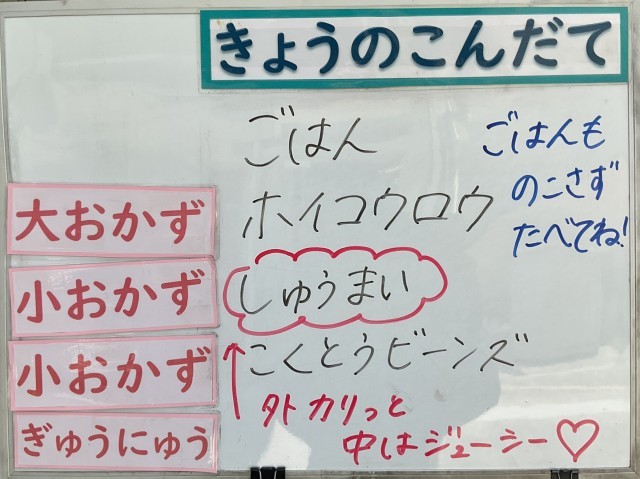 きょうのこんだて
ごはん
ごはんも
のこさず
たべてね!
大おかず
ホイコウロウ
小おかず
しゅうまい
小おかず
こくとうビーンズ
ぎゅうにゅう
外カリっと
中はジューシー♡